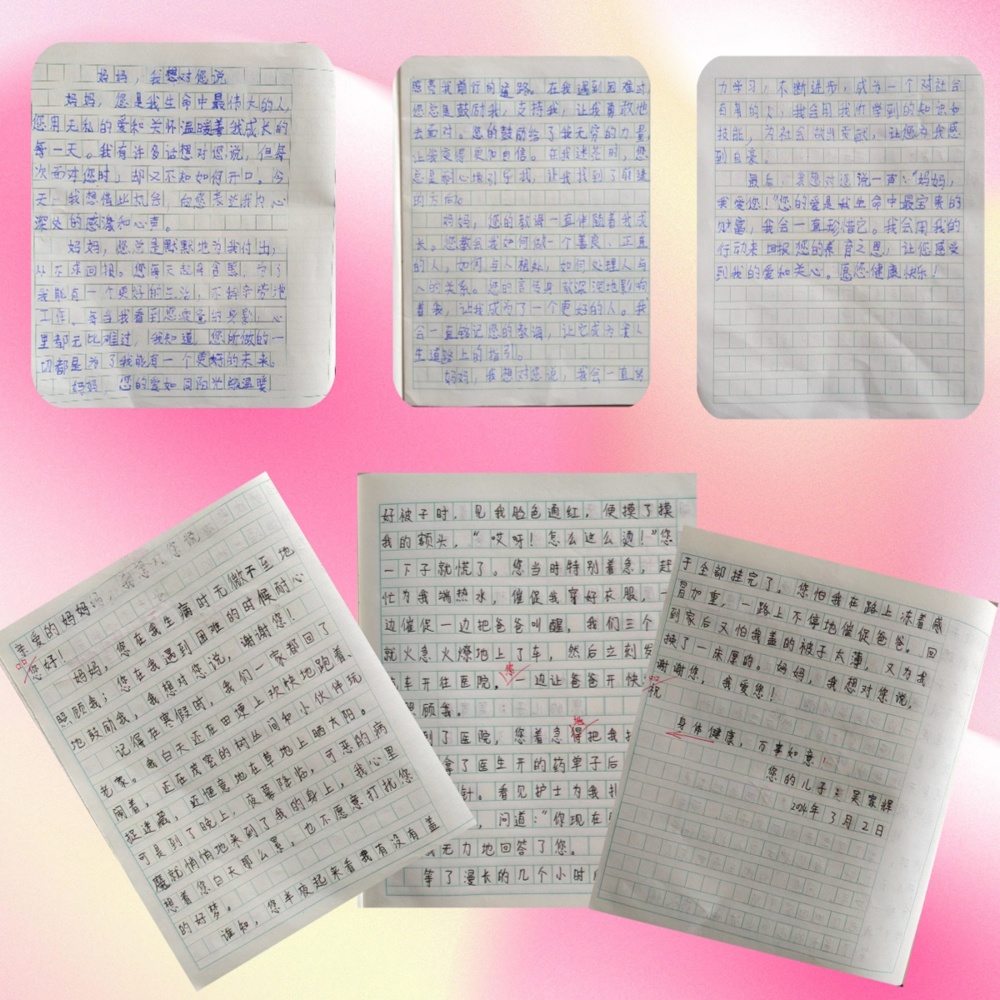 妈妈，我想对您说
妈妈，您是我生命中最伟大的人
您用无私的爱和关怀温暖着我成长的
每一天。我有许多话想对您说，但每
次面对您时，却又不知如何开口。今
天，我想借此机会，向您表达我内心
深处的感激和心声。
妈妈，您总是默默地为我付出，
从不求回报。您每天起早贪黑，为了
我能有一个更好的生活，不辞辛劳地
工作。每当我看到您疲惫的身影，心
里都无比难过，我知道，您所做的一
切都是为了我能有一个更好的未来。
妈妈，您的爱如同阳光般温暖
照亮我前行的道路。在我遇到困难时，
您总是鼓励我，支持我，让我勇敢地
去面对。您的鼓励给了我无穷的力量，
让我变得更加自信。在我迷茫时，您
总是耐心地引导我，让我找到了前进
的方向。
妈妈，您的教诲一直伴随着我成
长。您教会我如何做一个善良、正直
的人，如何与人相处，如何处理人与
人的关系。您的言传身教深深地影响
着我，让我成为了一个更好的人。我
会一直铭记您的教诲，让它成为我人
生道路上的指引。
妈妈，我想对您说，我会一直努
力学习，不断进步，成为一个对社会
有用的人，我会用我所学到的知识和
技能，为社会做出贡献，让您为我感
到自豪。
最后，我想对您说一声：“妈妈，
我爱您！”您的爱是我生命中最宝贵的
财富，我会一直珍惜它。我会用我的
行动来回报您的养育之恩，让您感受
到我的爱和关心。愿您健康快乐！
亲爱的妈妈：
您好！
妈妈，您在我生病时无微不至地
照顾我；您在我遇到困难的时候耐心
地鼓励我，我想对您说，谢谢您！
记得在寒假时，我们一家都回了
老家。我白天还在田埂上欢快地跑着
闹着，还在茂密的树丛间和小伙伴玩
捉迷藏，还惬意地在草地上晒太阳。
可是到了晚上，夜幕降临，可恶的病
魔就悄悄地来到了我的身上，我心里
想着您白天那么累，也不愿意打扰您
的好梦。
谁知，您半夜起来看我有没有盖
好被子时，见我脸色通红，便摸了摸
我的额头，“哎呀！怎么这么烫！”您
一下子就慌了。您当时特别着急，赶
忙为我端热水，催促我穿好衣服，一
边催促一边把爸爸叫醒，我们三个
就火急火燎地上了车，然后立刻发
车开往医院。您一边让爸爸开快
照顾我。
到了医院，您着急得把我
拿了医生开的药单子后
针。看见护士为我扎
，问道：“你现在
无力地回答了您。
等了漫长的几个小时
于全部挂完了。您怕我在路上冻着感
冒加重，一路上不停地催促爸爸。回
到家后又怕我盖的被子太薄，又为我
换了一床厚的。妈妈，我想对您说，
谢谢您，我爱您！
祝
身体健康，万事如意！
您的儿子：吴家
2024年3月2日